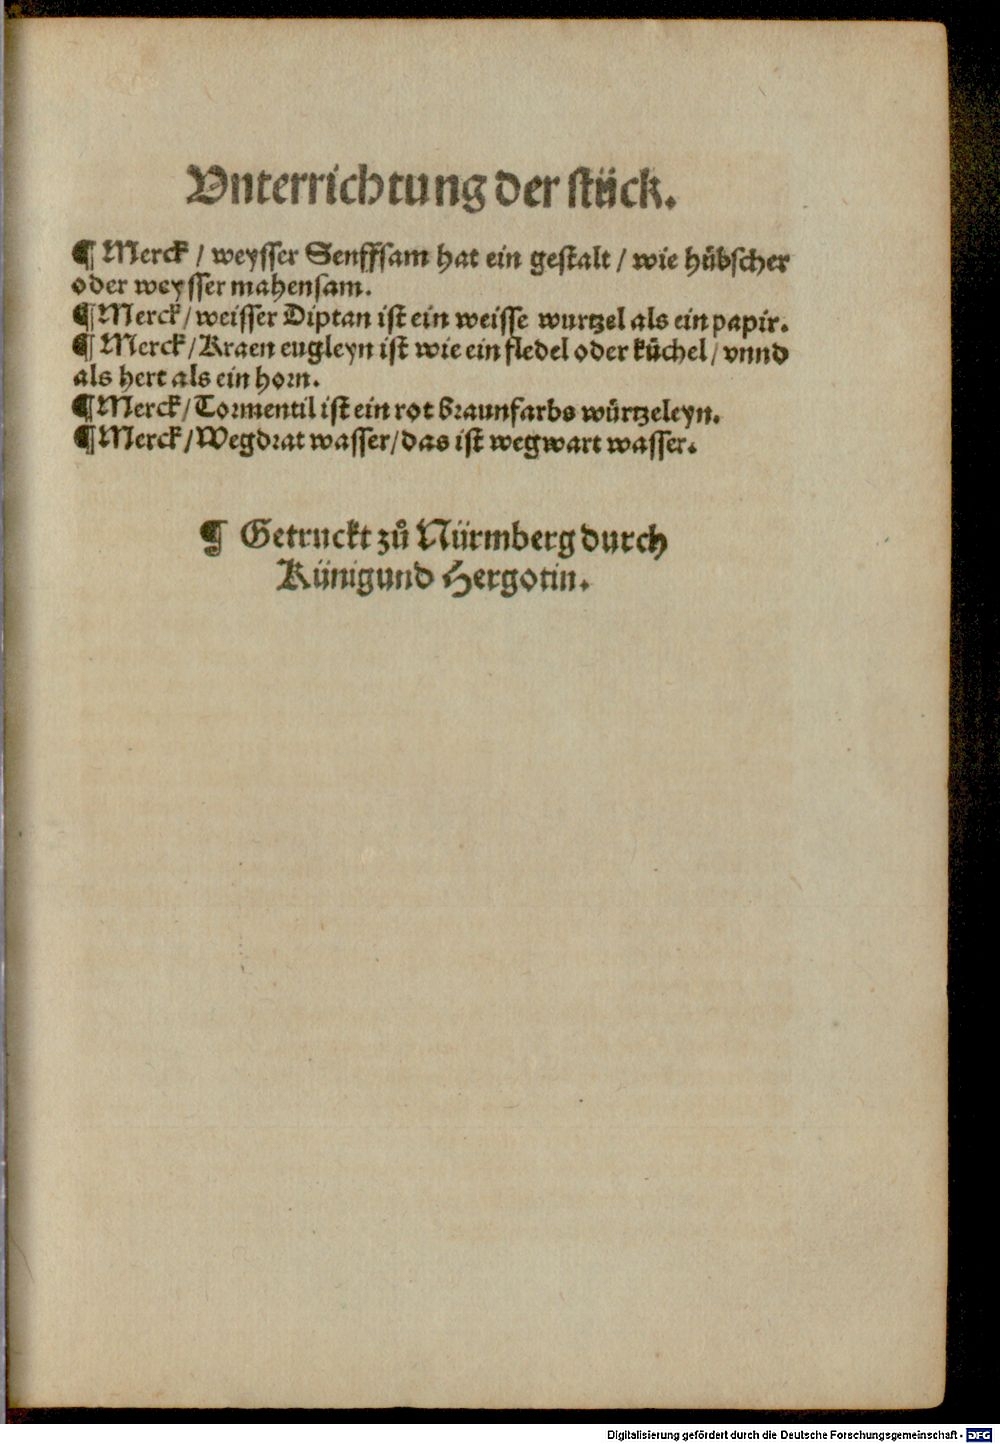 Vnterrichtung der stück.
¶ Merck / weysser Senffsam hat ein gestalt / wie hübscher
oder weysser mahensam.
¶ Merck / weisser Diptan ist ein weisse wurtzel als ein papir.
¶ Merck / Kraen eugleyn ist wie ein fledel oder küchel / vnnd
als hert als ein horn.
¶ Merck / Tormentil ist ein rot braunfarbs würtzeleyn.
¶ Merck / Wegdrat wasser / das ist wegwart wasser.
¶ Getruckt zů Nürmberg durch
Künigund Hergotin.
Digitalisierung gefördert durch die Deutsche Forschungsgemeinschaft - DFG